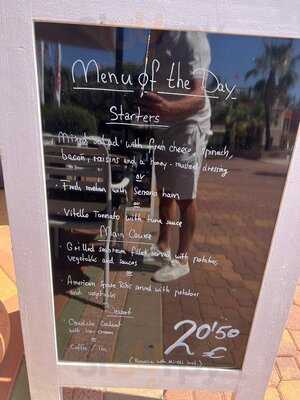 Menu of the Day
Starters
Mixed salad with fresh cheese, spinach,
bacon, raisins and a honey - mustard dressing
or
· Fresh melon with Serrano ham
or
· Vitello Tonnato with tuna sauce
Main Course
· Grilled salmon fillet served with potatoes,
vegetables and sauces
or
· American Spare Ribs served with potatoes
and vegetables
Dessert
Chocolate Coulant
with ice cream
or
Coffee / Tea
20'50
€